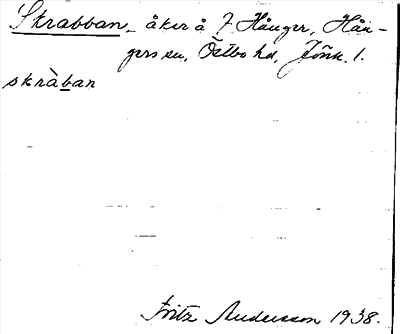 Skrabban - åker å 7 Hånger, Hån-
gers sn, Östbo hd, Jönk. l.
skràban
Fritz Andersson 1938.